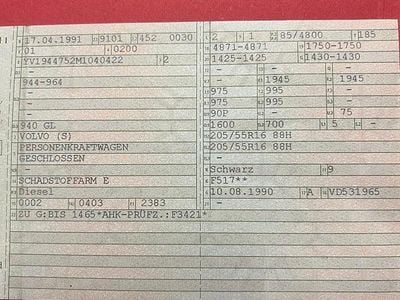 17.04.1991 9101 452 0030
01 0200
YV1944752M1040422 2
-
944-964
-
-
-
940 GL
VOLVO (S)
PERSONENKRAFTWAGEN
GESCHLOSSEN
-
SCHADSTOFFARM E
Diesel
0002 0403 2383
ZU G:BIS 1465*AHK-PRÜFZ.:F3421*
2 1 85/4800
4871-4871 1750-1750
1425-1425 1430-1430
-
- 1945 1945
975 995
975 995 -
90P - 75
1600 700 5 -
205/55R16 88H
205/55R16 88H
-
Schwarz 9
F517**
10.08.1990 A VD531965
-